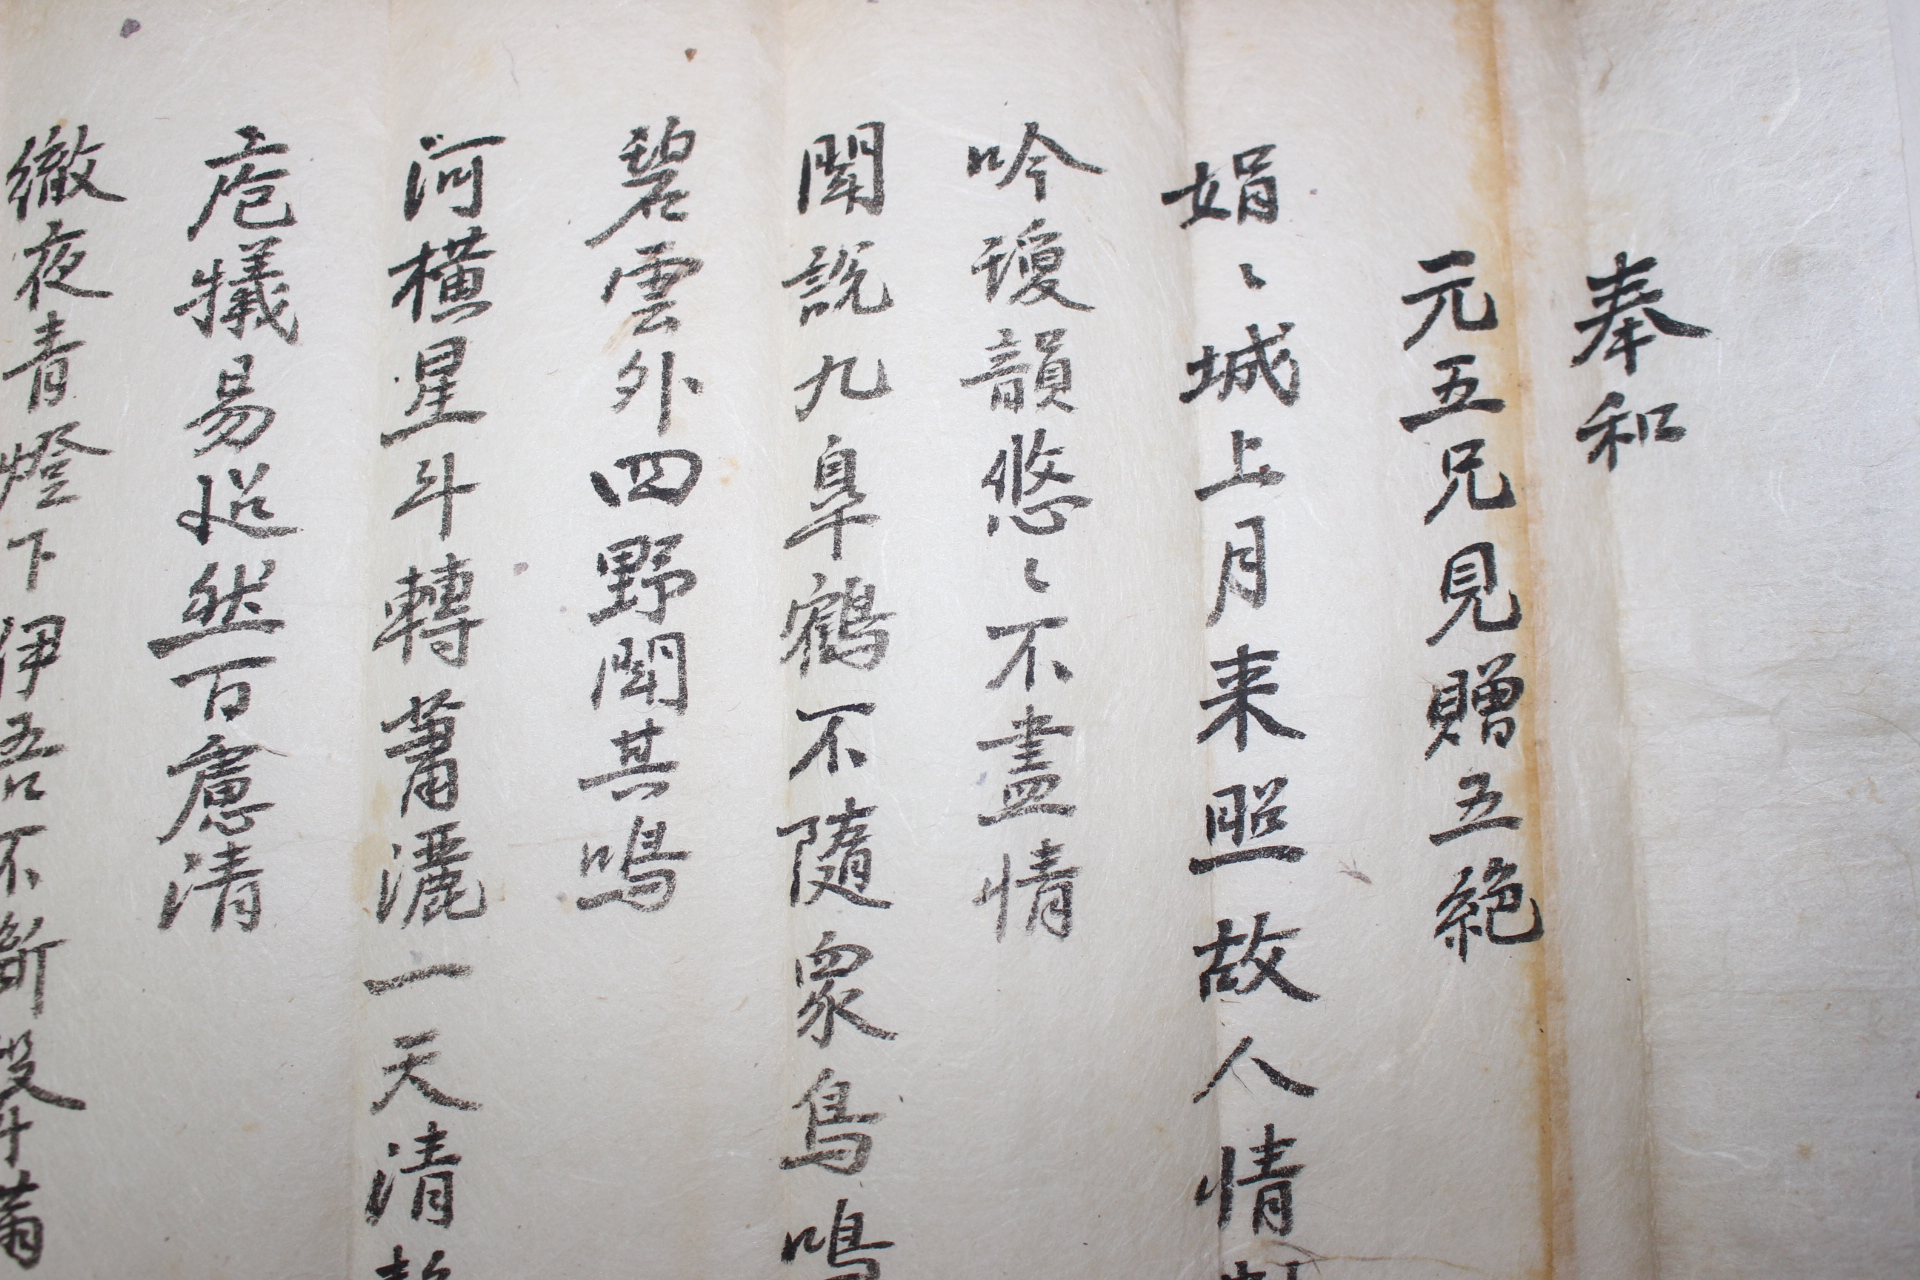 奉和
元五兄見贈五絶
娟〻城上月来照故人情
吟瓊韻悠〻不盡情
聞説九皐鶴不隨衆鳥鳴
碧雲外四野聞其鳴
河横星斗轉蕭灑一天清
庖犧易超然百慮清
徹夜青燈下伊吾不斷聲